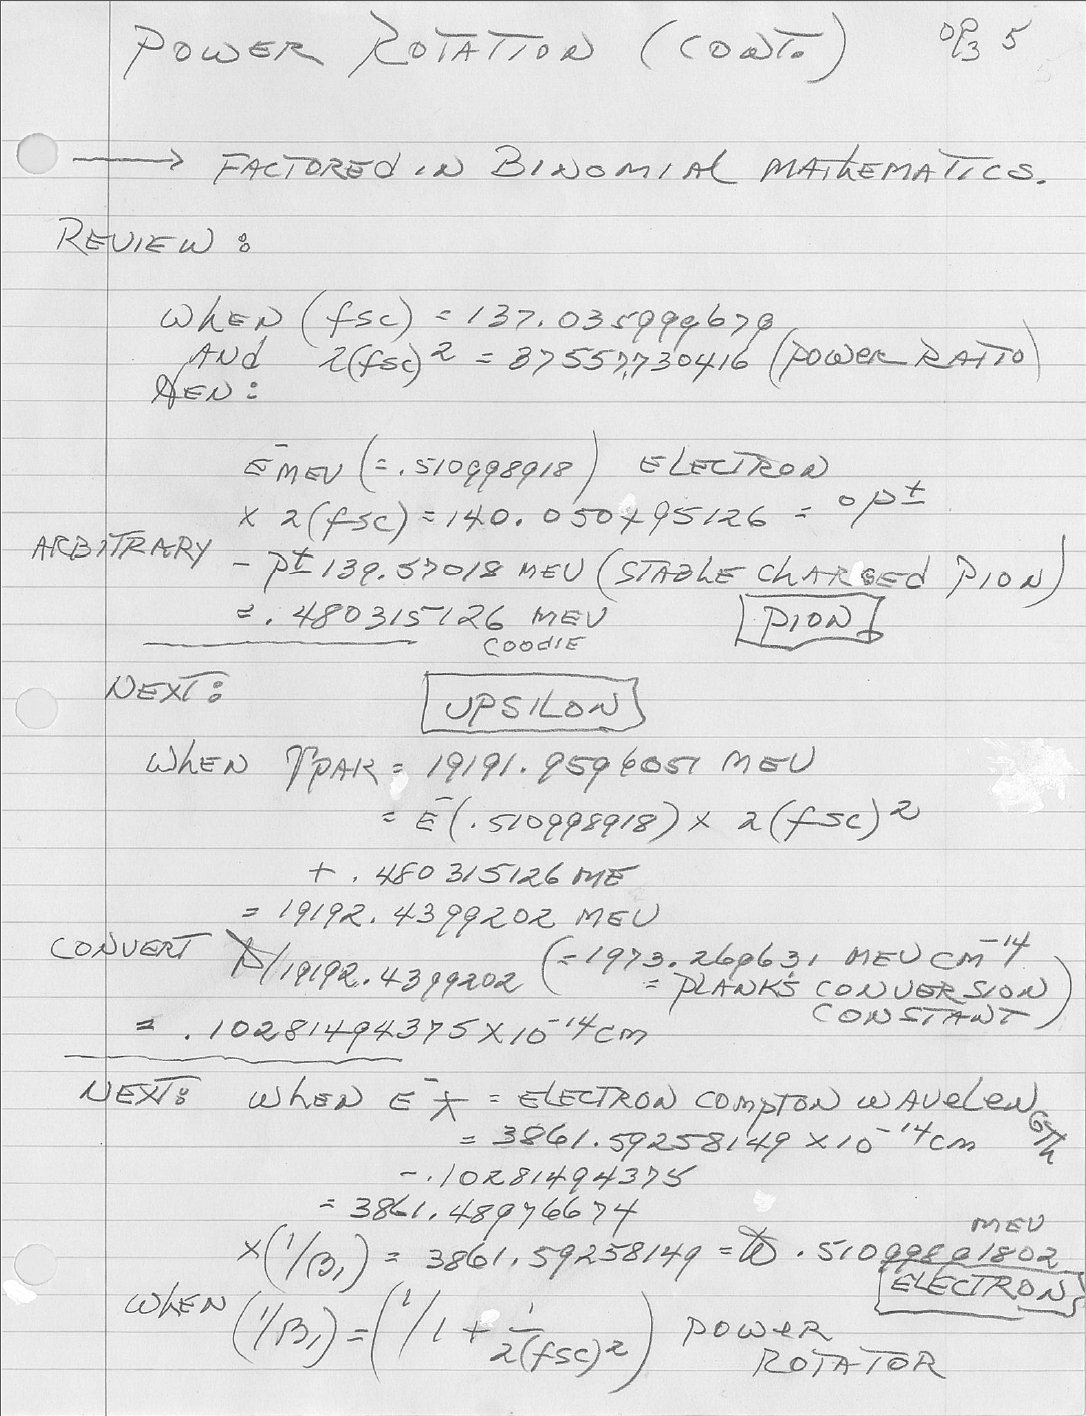 POWER ROTATION (CONT.) OP3 5
→ FACTORED IN BINOMIAL MATHEMATICS.
REVIEW:
WHEN (fsc) = 137.035999679
AND 2(fsc)² = 37557.730416 (POWER RATIO)
THEN:
E⁻MEV (=.510998918) ELECTRON
× 2(fsc) = 140.050495126 = OP±
ARBITRARY - P± 139.57018 MEV (STABLE CHARGED PION)
= .480315126 MEV PION
COODIE
NEXT: UPSILON
WHEN ϒPAR = 19191.9596051 MEV
= E⁻(.510998918) × 2(fsc)²
+ .480315126 ME
= 19192.4399202 MEV
CONVERT ħ/19192.4399202 (=1973.269631 MEV CM⁻¹⁴
= PLANKS CONVERSION
CONSTANT)
= .10281494375 × 10⁻¹⁴ CM
NEXT: WHEN E⁻ƛ = ELECTRON COMPTON WAVELENGTH
= 3861.59258149 × 10⁻¹⁴ CM
- .10281494375
= 3861.48976674
MEV
×(1/B₁) = 3861.59258149 = .51099891802
ELECTRON
WHEN (1/B₁) = (1/1 + 1/2(fsc)²) POWER
ROTATOR